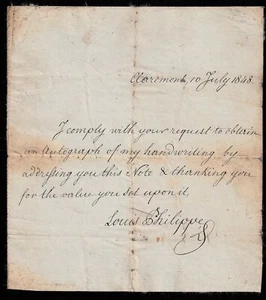 Claremont, 10 July 1848.
I comply with your request to obtain
an Autograph of my handwriting by
addressing you this Note & thanking you
for the value you set upon it,
Louis Philippe